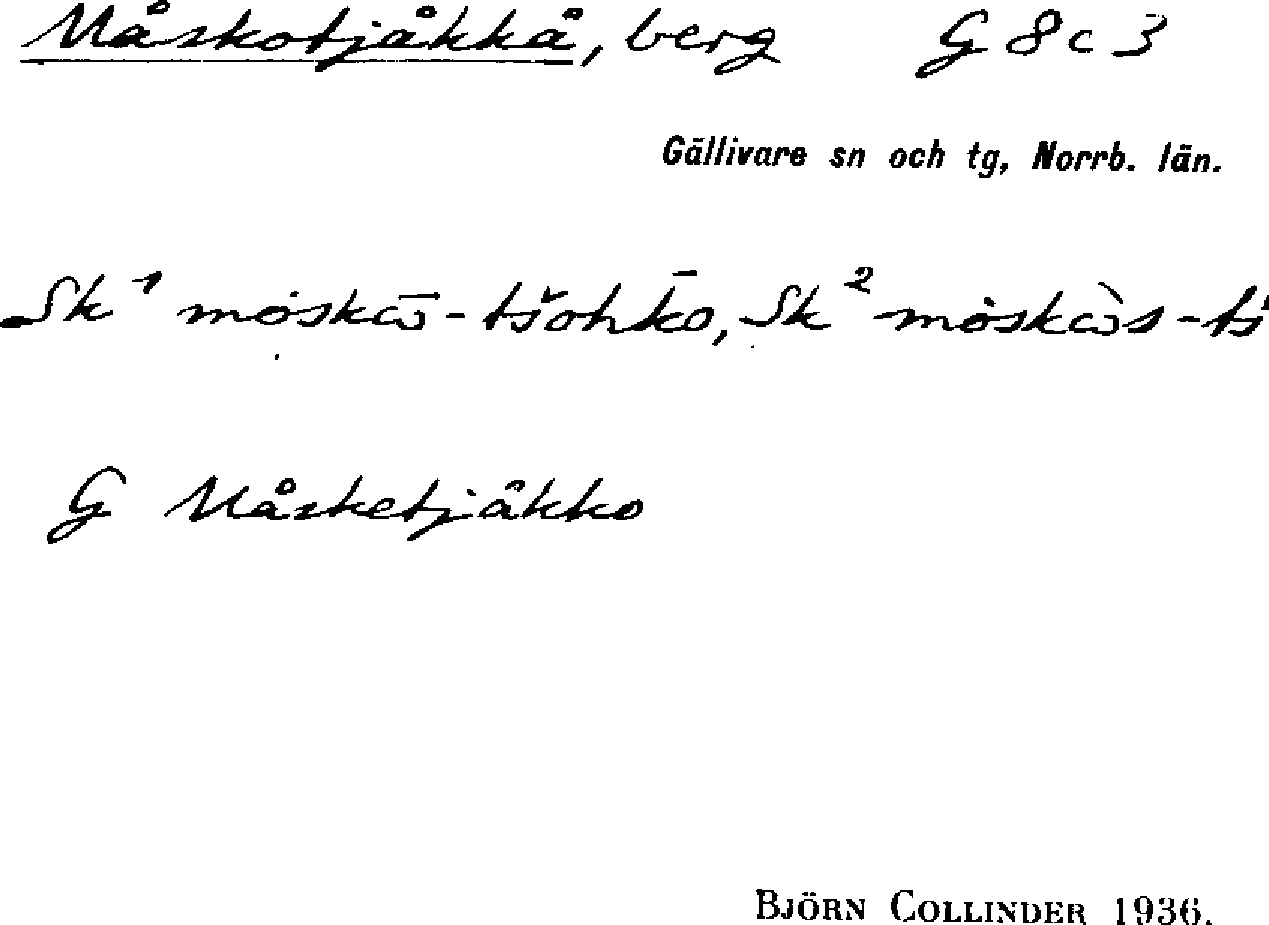 Måskotjåkkå, berg G 8 c 3
Gällivare sn och tg, Norrb. län.
Sk¹ mọskω̄-tšoh̄ko, Sk² mọskὼs-tš
G Måsketjåkko
BJÖRN COLLINDER 1936.